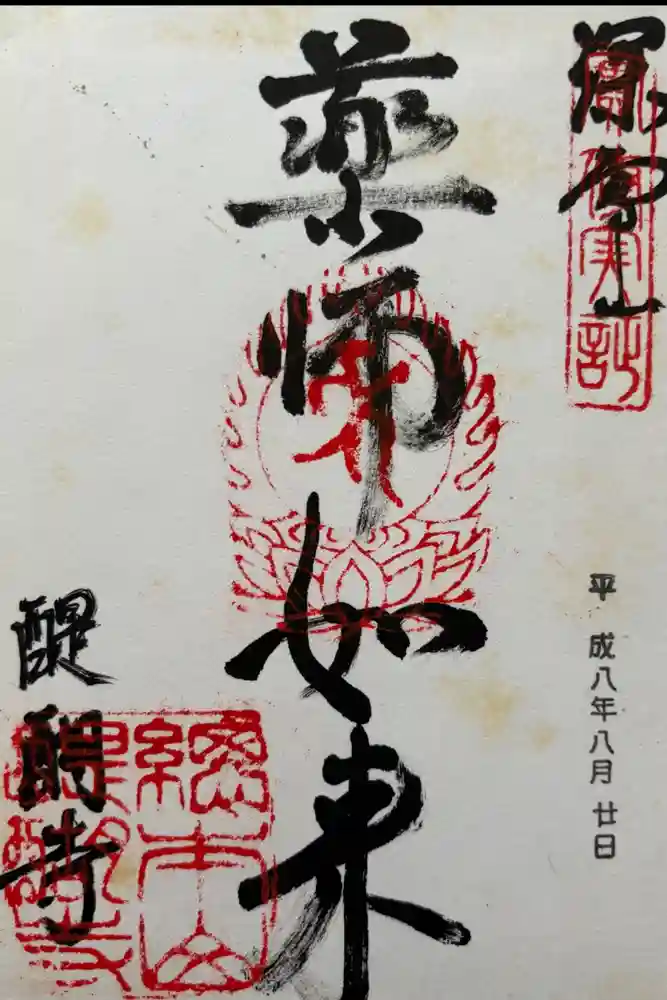 薬師如来
平成八年八月廿日
醍醐寺
總本山
醍醐寺